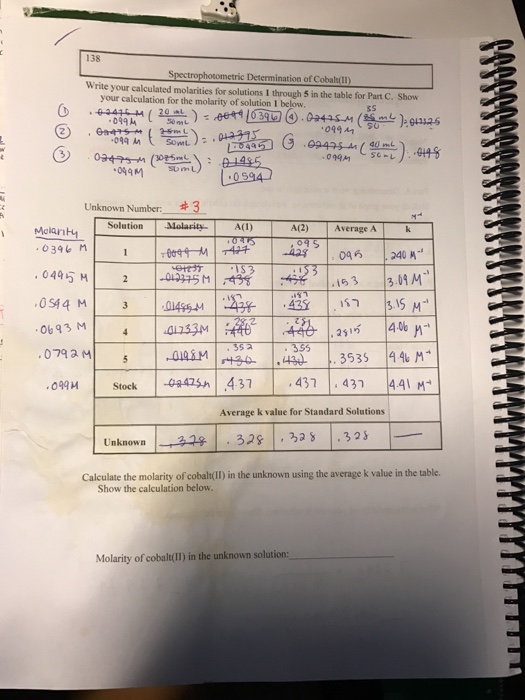 138
Spectrophotometric Determination of Cobalt(II)
Write your calculated molarities for solutions 1 through 5 in the table for Part C. Show
your calculation for the molarity of solution 1 below.
① .099M ( 20 mL / 50mL ) = .0396
② .099M ( 25mL / 50mL ) = .0495
③ .099M ( 30 mL / 50mL ) : .0594
④ .02475M .099M ( 35 mL / 50 )
.02475M .099M ( 40 mL / 50mL )
Unknown Number: #3
Molarity Solution Molarity A(1) A(2) Average A k
.0396 M 1 .0099 M .095 .095 .095 .240 M⁻¹
.0495 M 2 .012375M .153 .153 .153 3.09 M⁻¹
.0594 M 3 .01485M .187 .187 .187 3.15 M⁻¹
.0693 M 4 .01733M .282 .281 .2815 4.06 M⁻¹
.0792M 5 .0198M .352 .355 .3535 4.46 M⁻¹
.099M Stock .02475M .437 .437 .437 4.41 M⁻¹
Average k value for Standard Solutions
Unknown .328 .328 .328 .328 —
Calculate the molarity of cobalt(II) in the unknown using the average k value in the table.
Show the calculation below.
Molarity of cobalt(II) in the unknown solution: